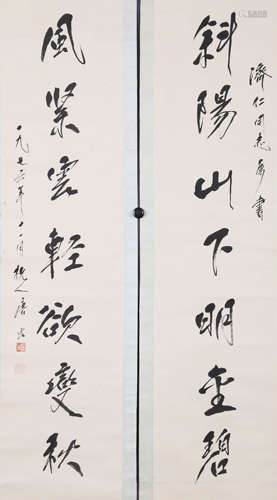 濟仁同志屬書
斜陽山下明金碧
風緊雲輕欲變秋
一九七六年十一月純人唐雲